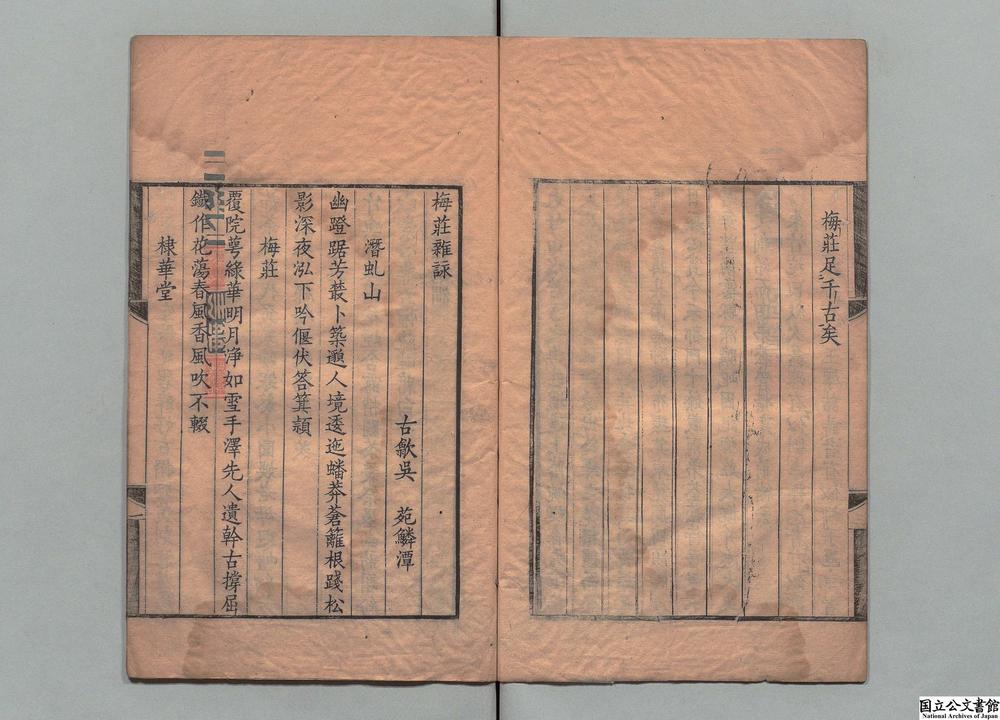 梅莊足千古矣
梅莊雜詠
古歙吳 苑鱗潭
潛虬山
幽蹬踞芳叢卜築邈人境逶迤蟠莽蒼籬根踐松
影深夜泓下吟偃伏答箕潁
梅莊
覆院萼綠華明月淨如雪手澤先人遺幹古撐屈
鐵作花蕩春風香風吹不輟
棣華堂
国立公文書館
National Archives of Japan